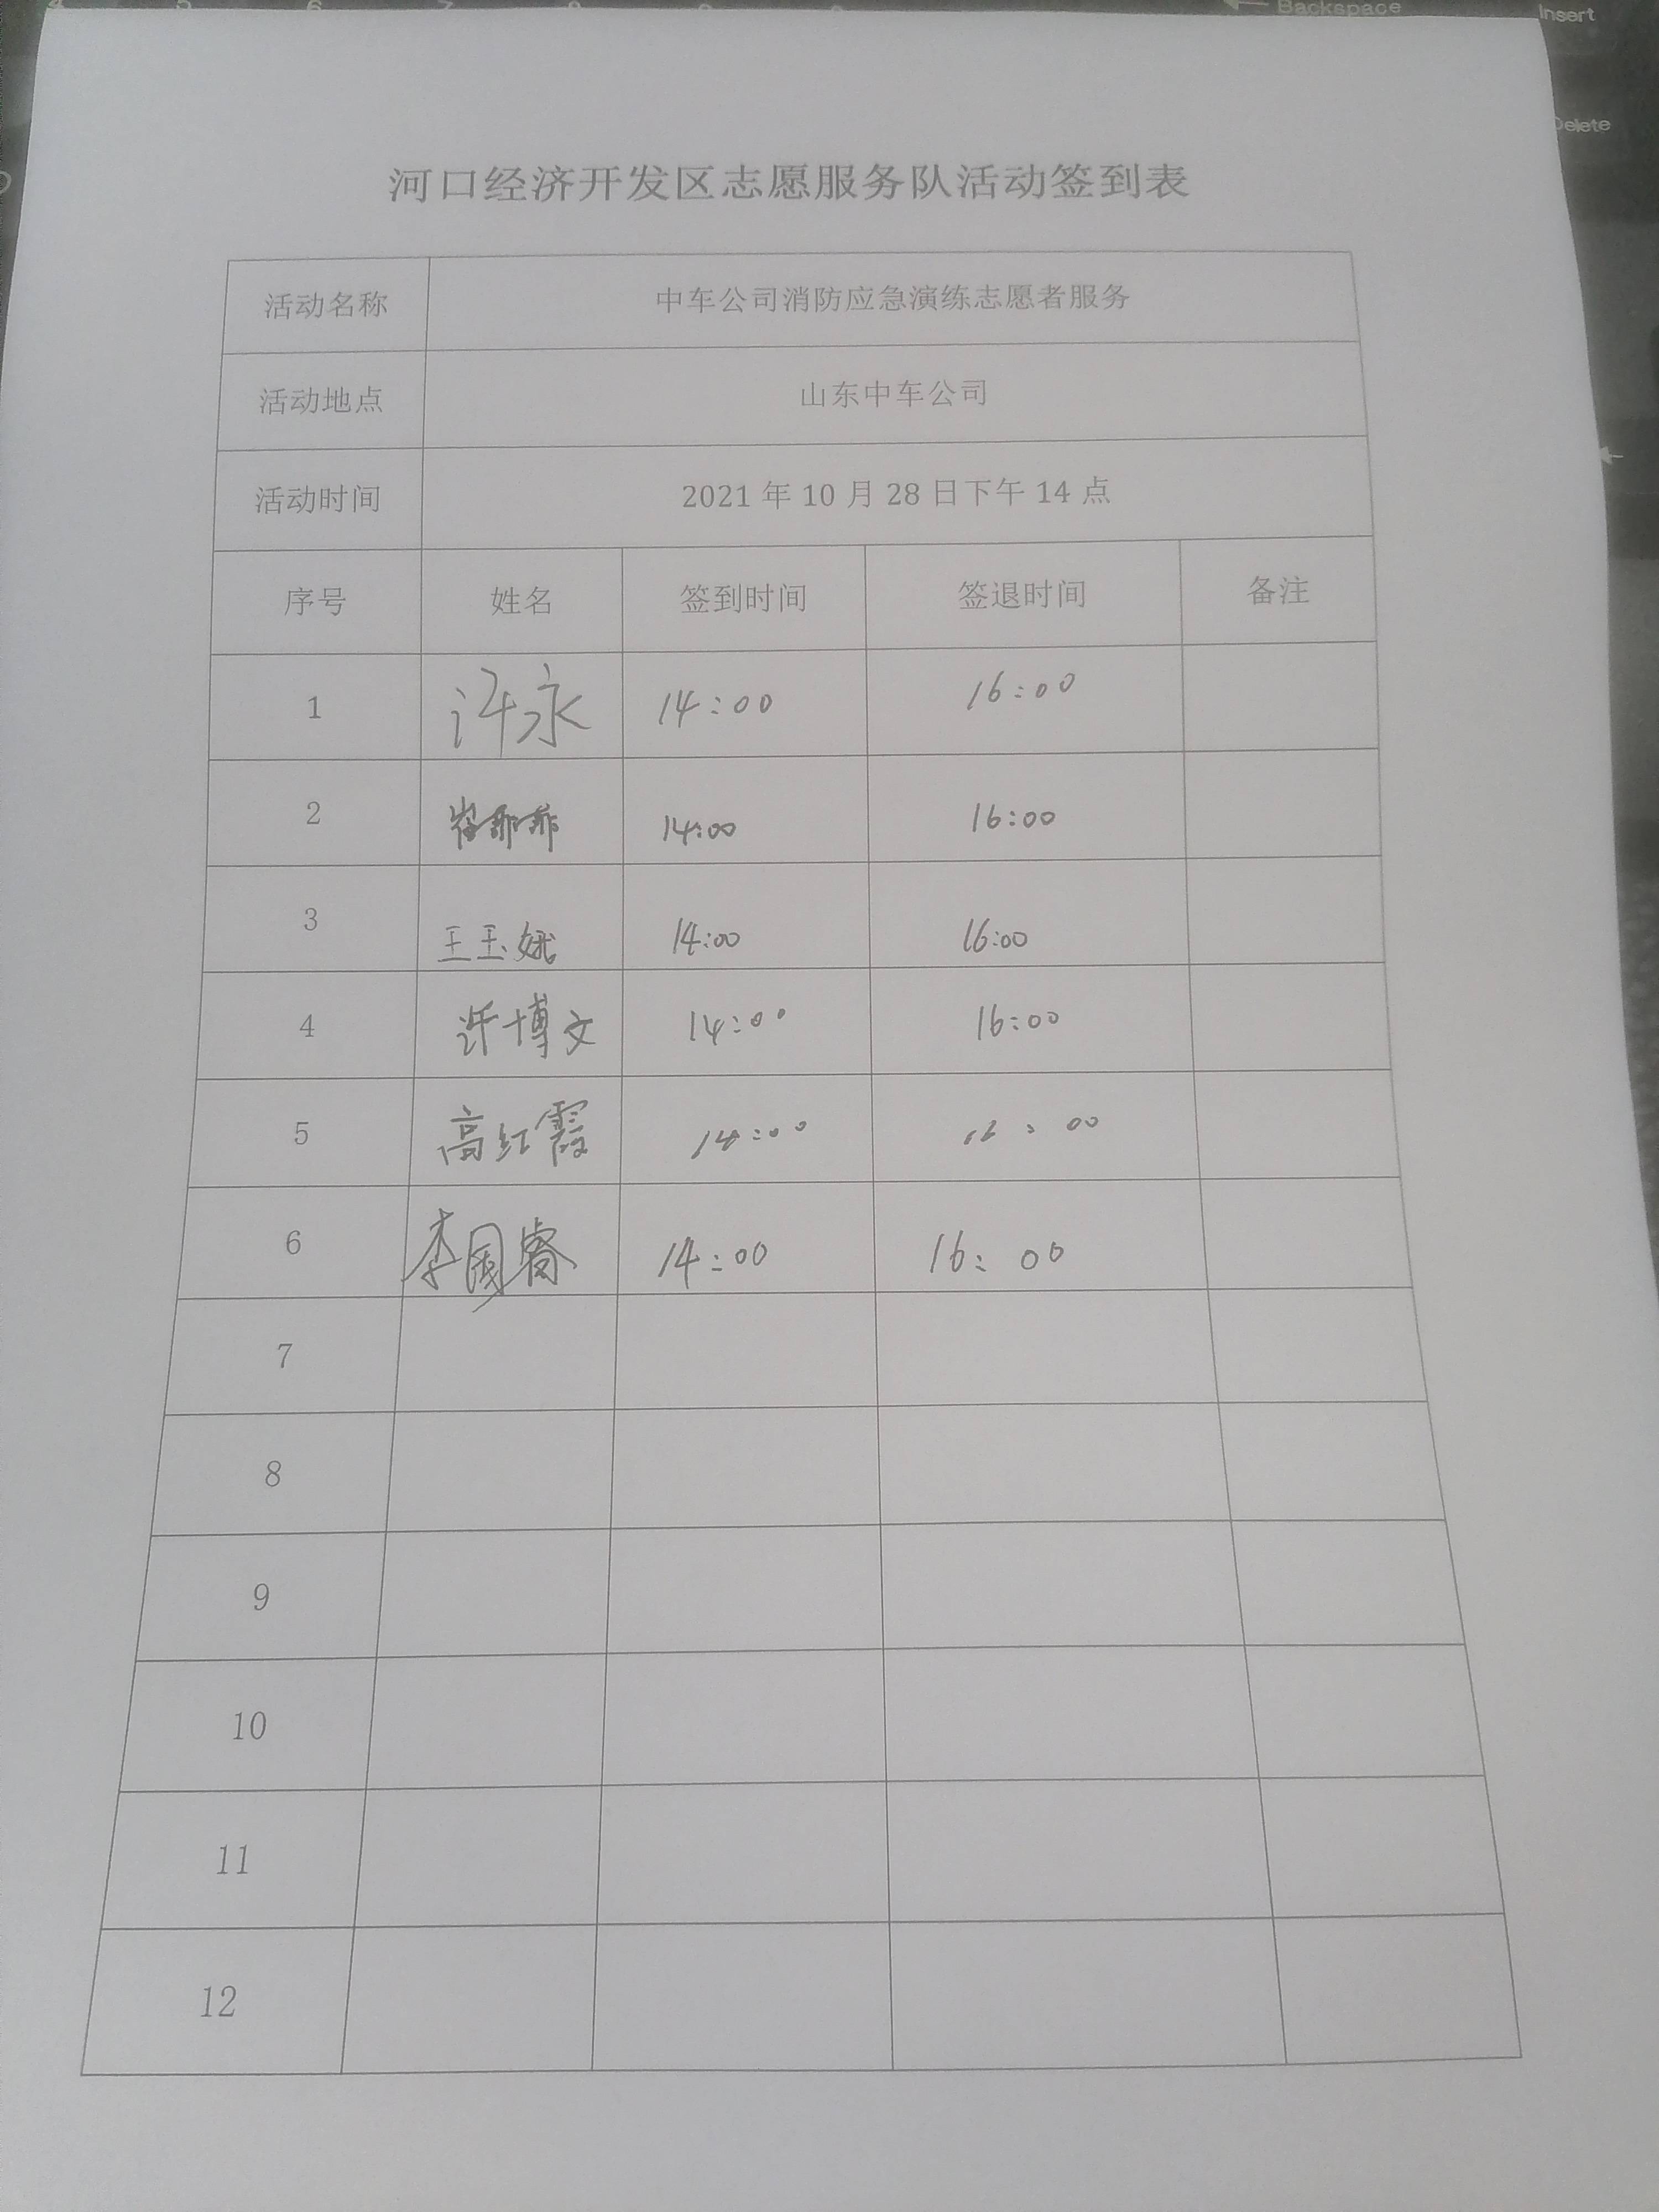 Backspace
Insert
Delete
河口经济开发区志愿服务队活动签到表
活动名称 中车公司消防应急演练志愿者服务
活动地点 山东中车公司
活动时间 2021年10月28日下午14点
序号 姓名 签到时间 签退时间 备注
1 许永 14:00 16:00
2 崔菲菲 14:00 16:00
3 王玉娥 14:00 16:00
4 许博文 14:00 16:00
5 高红霞 14:00 16:00
6 李国睿 14:00 16:00
7
8
9
10
11
12